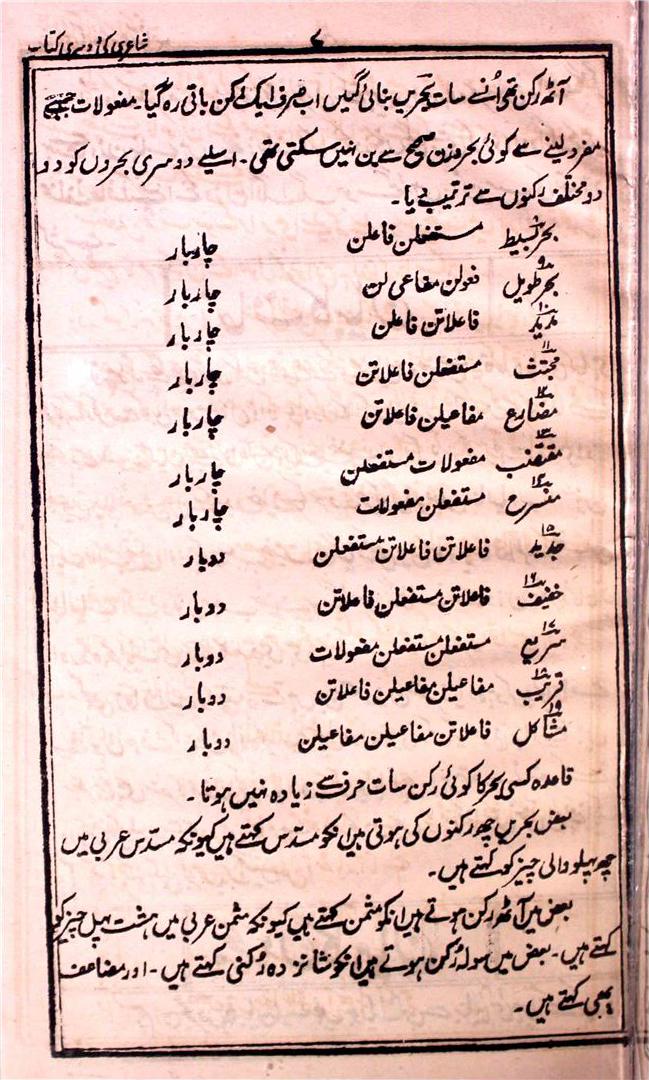 شاعری کی دوسری کتاب
۷
آٹھ رکن تھی اُنسے سات بحریں بنائی گئیں اب صرف ایک رُکن باقی رہ گیا۔ مفعولات جسے
مفرد لینے سے کوئی بحر وزن صحیح سے بن نہیں سکتی تھی۔ اسلیے دوسری بحروں کو دو
دو مختلف رکنوں سے ترتیب دیا۔
بحر بسیط مستفعلن فاعلن چار بار
۹ بحر طویل فعولن مفاعی لن چار بار
۱۰ مدید فاعلاتن فاعلن چار بار
۱۱ مجتث مستفعلن فاعلاتن چار بار
۱۲ مضارع مفاعیلن فاعلاتن چار بار
۱۳ مقتضب مفعولات مستفعلن چار بار
۱۴ منسرح مستفعلن مفعولات چار بار
۱۵ جدید فاعلاتن فاعلاتن مستفعلن دو بار
۱۶ خفیف فاعلاتن مستفعلن فاعلاتن دو بار
۱۷ سریع مستفعلن مستفعلن مفعولات دو بار
۱۸ قریب مفاعیلن مفاعیلن فاعلاتن دو بار
۱۹ مشاکل فاعلاتن مفاعیلن مفاعیلن دو بار
قاعدہ کسی بحر کا کوئی رکن سات حرف سے زیادہ نہیں ہوتا۔
بعض بحریں چھ رکنوں کی ہوتی ہیں انکو مسدس کہتے ہیں کیونکہ مسدس عربی میں
چھ پہلو والی چیز کو کہتے ہیں۔
بعض میں آٹھ رکن ہوتے ہیں انکو مثمن کہتے ہیں کیونکہ مثمن عربی میں ہشت پہل چیز کو
کہتے ہیں۔ بعض میں سولہ رُکن ہوتے ہیں انکو شانزدہ رُکنی کہتے ہیں۔ اور مضاعف
بھی کہتے ہیں۔